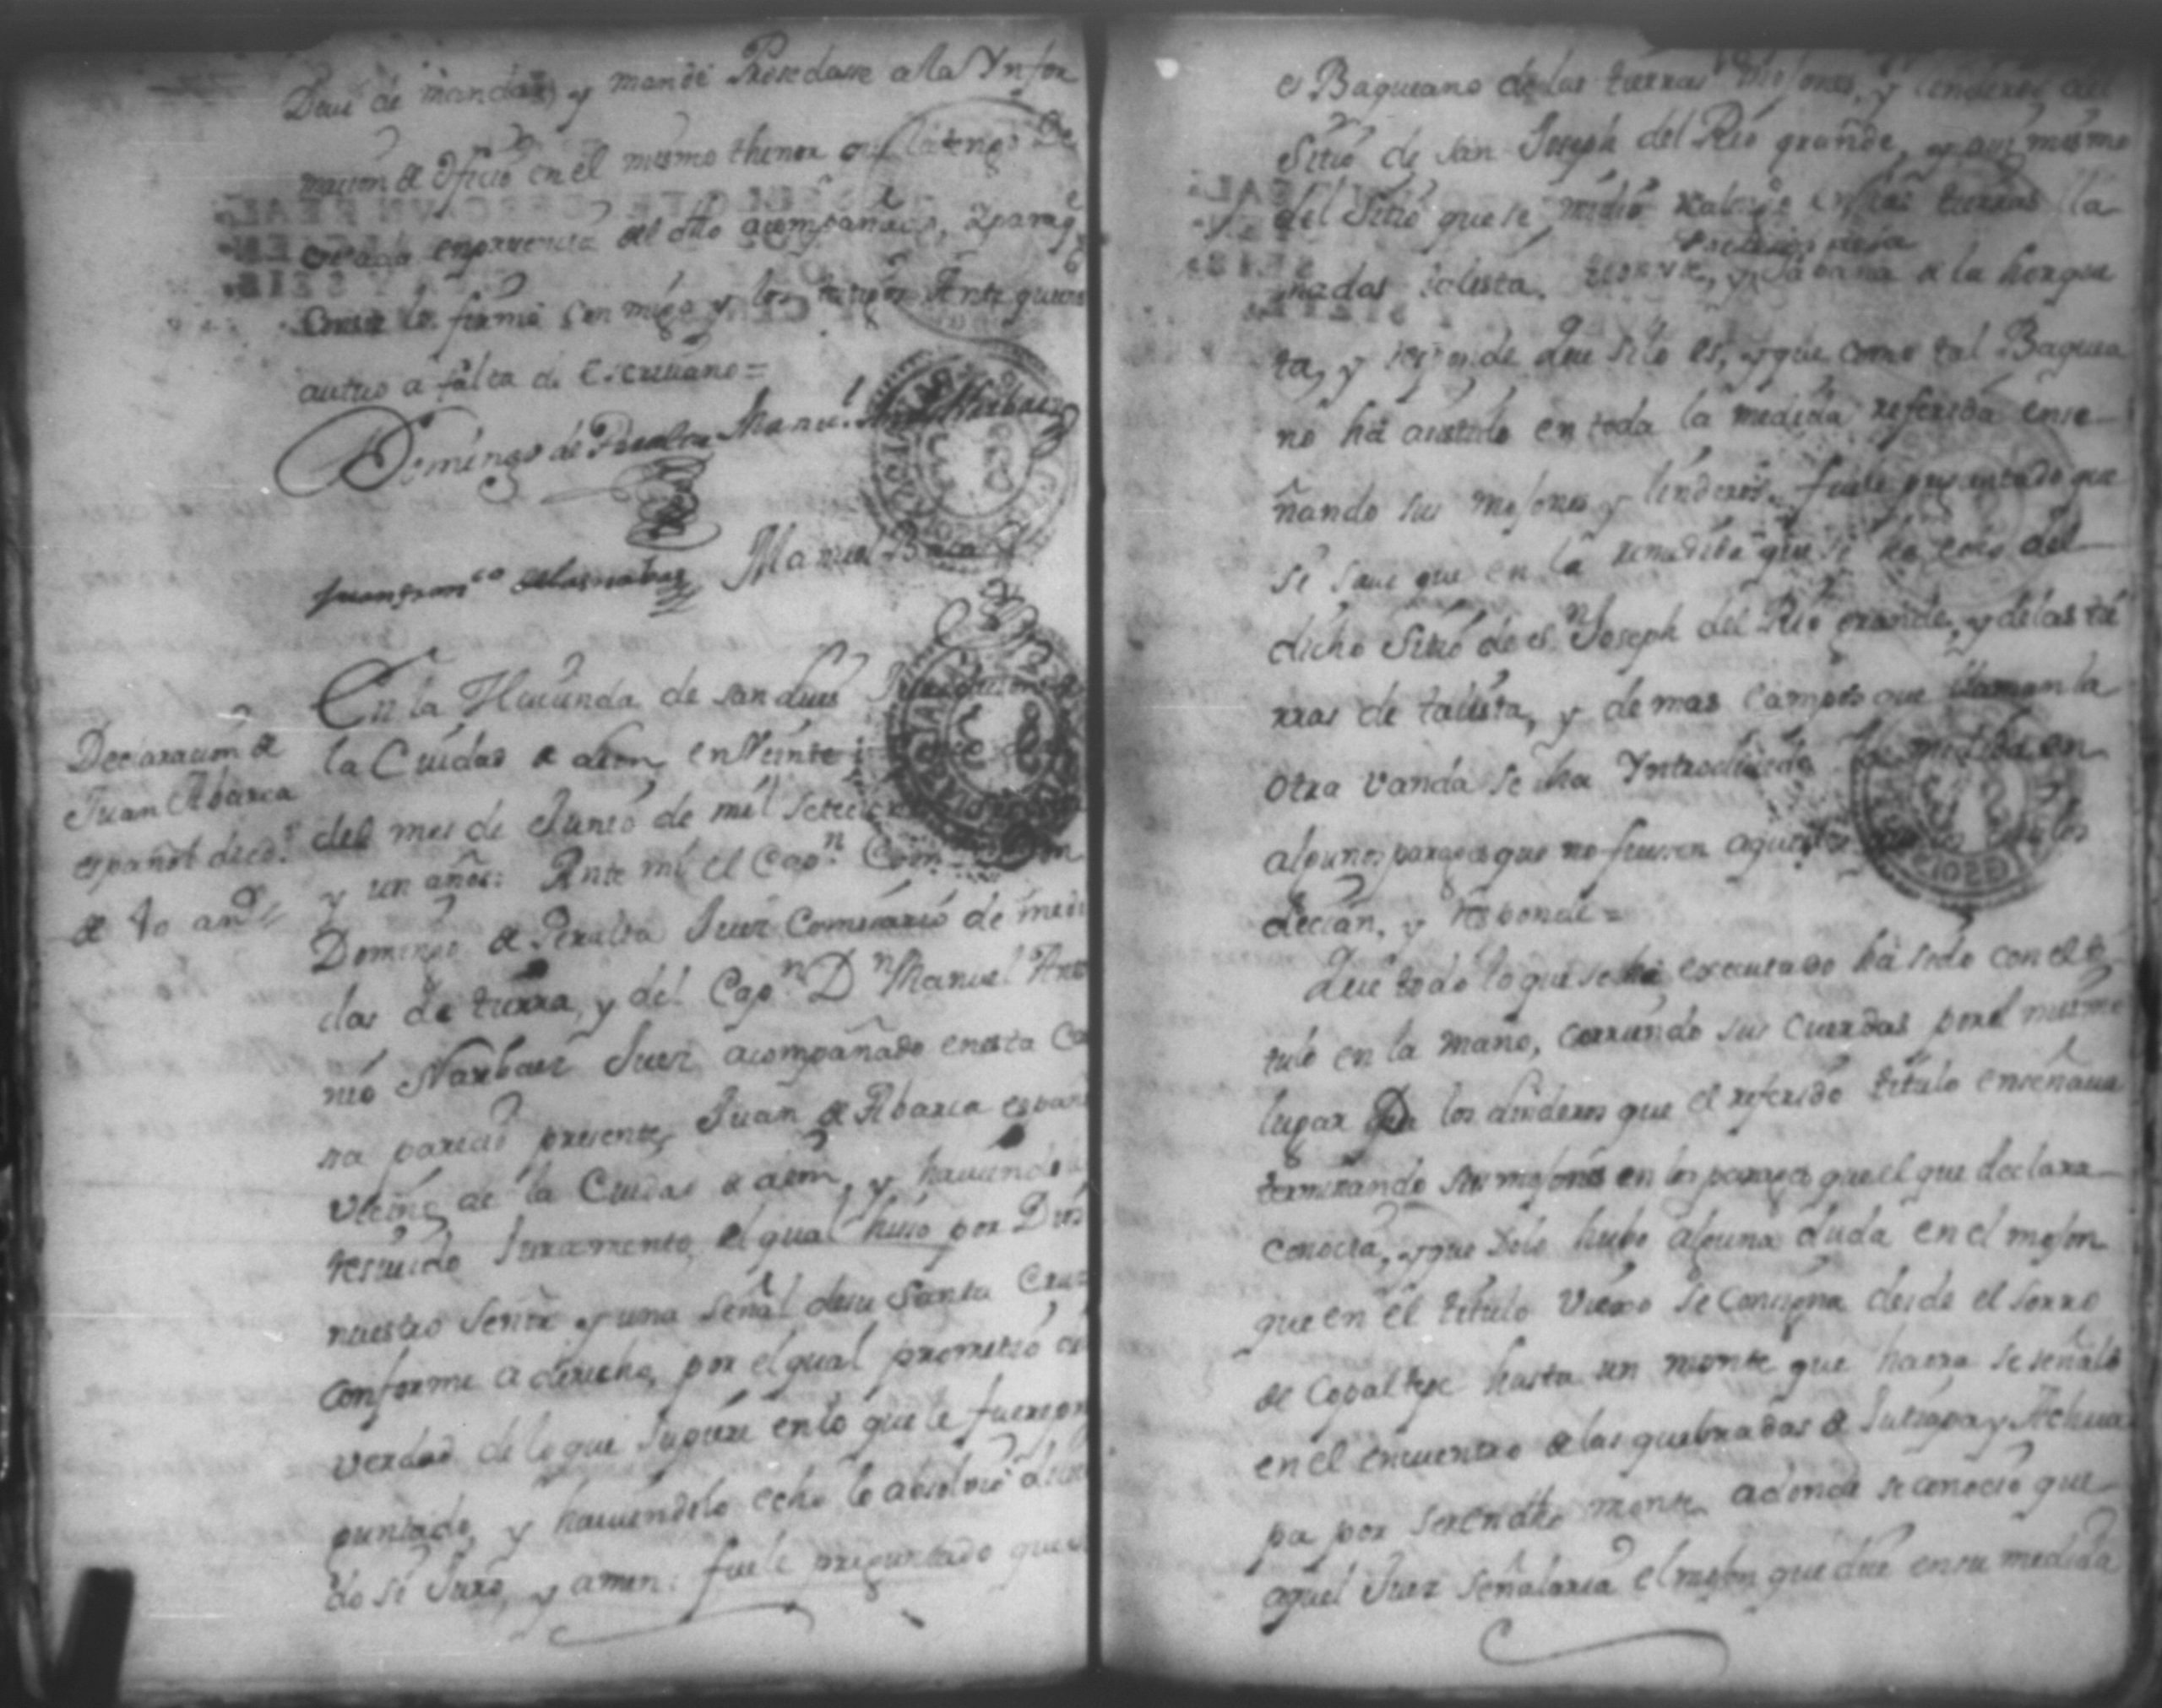 Deue de mandar, y mandé Prosedasse a la Ynfor
macion de oficio en el mismo thenor que la tengo
creada en presencia del dho acompañado, y para q.e
Conste lo firmó con migo y los testigos Ante quienes
actuo a falta de Escriuano=
Domingo de Peralta Manu.l Ant.o Narbaez
Juan Fran.co Manuel
Declaracion de
Juan Abarca
español de ed.d
de 40 añ.s
En la Hacienda de san Luis
la Ciudad de Leon en Veinte
del mes de Junio de mil setecien
y un años: Ante mi el Cap.n Com
Domingo de Peralta Juez Comisario de medi
das de tierra, y del Cap.n D.n Manuel Anto
nio Narbaez Juez acompañado en esta Ca
sa parecio presente, Juan de Abarca españ
Vecino de la Ciudad de Leon, y hauiendo
resiuido Juramento, el qual hiso por Dios
nuestro Señor y una Señal de su Santa Cruz
conforme a derecho, por el qual prometió de
verdad de lo que supiere en lo que le fuere pre
guntado, y hauiendole echo lo absoluio dicien
do si Juro, y amen: fuele preguntado que si
es Baqueano de las tierras Mojones, y Linderos del
Sitio de san Joseph del Rio grande, y assi mismo
del Sitio que se midió realengo en las tierras lla
madas talista, y Sabana de la horque
ta, y responde Que si lo es, y que como tal Baquea
no há asistido en toda la medida referida ense
ñando sus mojones y linderos. fuele preguntado que
si saue que en la remedida que se ha echo del
dicho Sitio de S.n Joseph del Rio grande, y de las tie
rras de talista, y demas Campos que llaman la
otra vanda se ha Yntroducido la medida en
algunos parages que no fuessen aquellos
decian, y responde=
Que todo lo que se há executado há sido con el ti
tulo en la mano, corriendo sus cuerdas por el mismo
lugar de los linderos que el referido titulo enseñaua
terminando sus mojones en los parages que el que declara
conocia, y que solo hubo alguna duda en el mojon
que en el titulo Viexo se consigna desde el serro
de Copaltepe hasta un monte que haora se señaló
en el encuentro de las quebradas de Jutiapa y Achua
pa por ser en dho monte adonde se conoció que
aquel Juez señalaria el mojon que dice en su medida